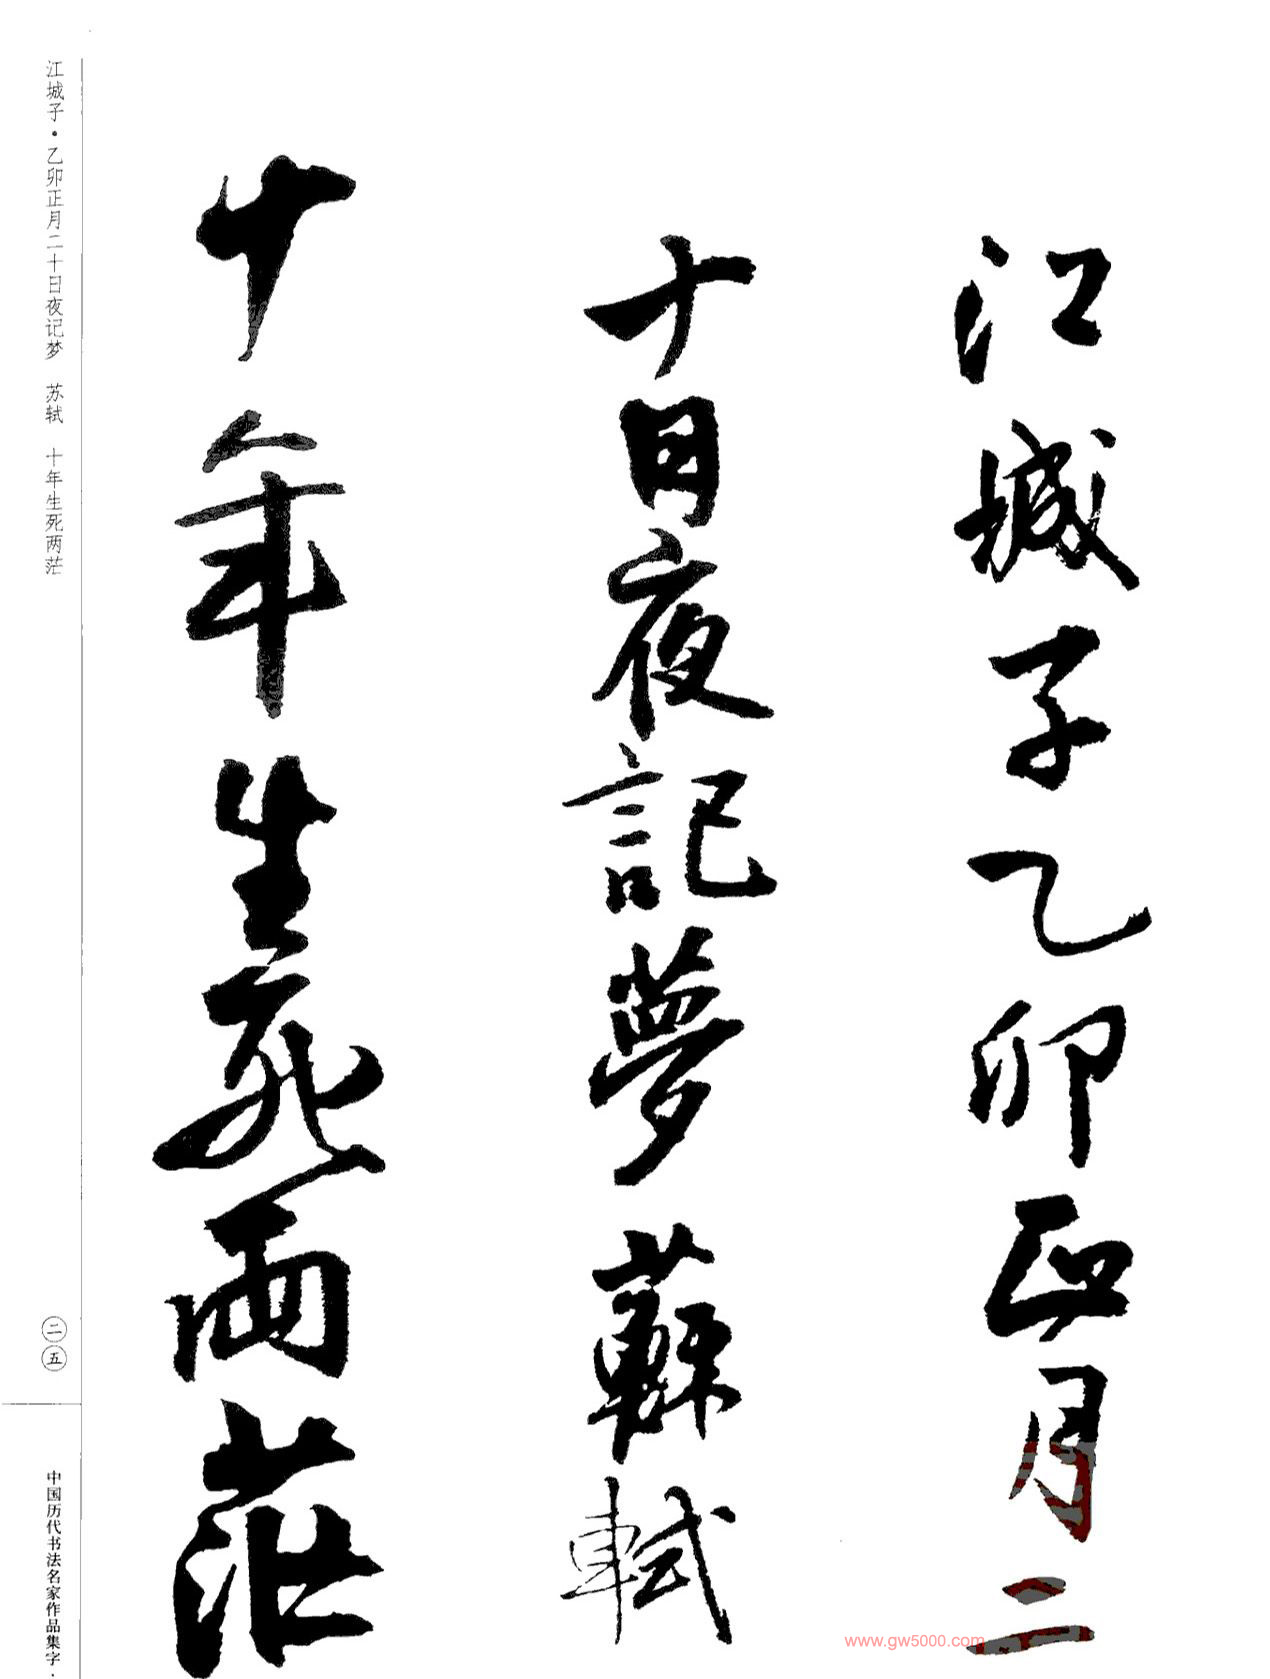 江城子乙卯正月二
十日夜記夢 蘇軾
十年生死兩茫
江城子·乙卯正月二十日夜记梦 苏轼 十年生死两茫
二五
中国历代书法名家作品集字·
www.gw5000.com